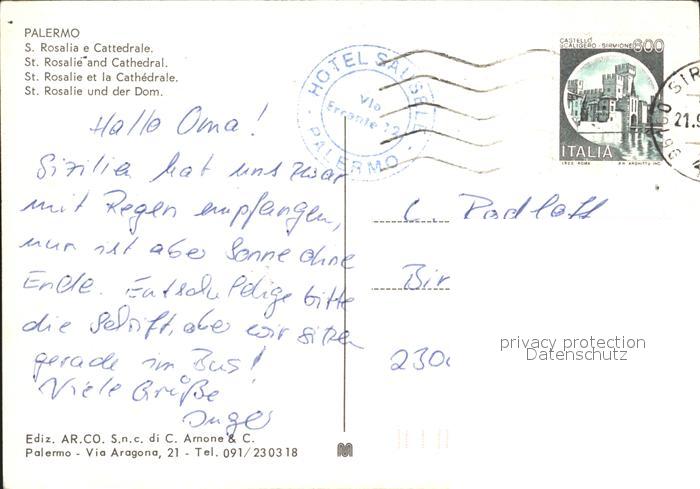 PALERMO
S. Rosalia e Cattedrale.
St. Rosalie and Cathedral.
St. Rosalie et la Cathédrale.
St. Rosalie und der Dom.
Hallo Oma!
Sizilia hat uns zwar
mit Regen empfangen,
nun ist aber Sonne ohne
Ende. Entschuldige bitte
die Schrift, aber wir sitzen
gerade im Bus!
Viele Grüße
Inge
Ediz. AR.CO. S.n.c. di C. Arnone & C.
Palermo - Via Aragona, 21 - Tel. 091/230318
HOTEL
Via
PALERMO
CASTELLO
SCALIGERO - SIRMIONE
600
ITALIA
21.9
C.
Bir
230
privacy protection
Datenschutz